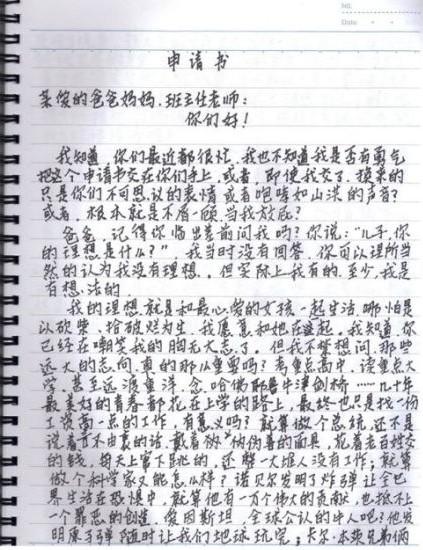 NO.
Date
申请书
亲爱的爸爸妈妈.班主任老师:
你们好!
我知道,你们最近都很忙,我也不知我是否有勇气
把这个申请书交在你们手上,或者,即使我交了,换来的
只是你们不可思议的表情或者咆哮如山洪的声音?
或者,根本就是不屑一顾,当我放屁?
爸爸,记得你临出差前问我吗?你说:“儿子,你
的理想是什么?”,我当时没有回答,你可以理所当
然的认为我没有理想。但实际上我有的.至少,我是
有想法的。
我的理想就是和最心爱的女孩一起生活,哪怕是
以砍柴、拾破烂为生,我愿意和她在一起。我知道,你
已经在嘲笑我的胸无大志了。但我不禁想问,那些
远大的志向,真的那么重要吗?考重点高中,读重点大
学,甚至远渡重洋,念哈佛耶鲁牛津剑桥……几十年
最美好的青春都花在上学的路上,最终也只是找一份
工资高一点的工作,有意义吗?就算做个总统,还不是
说着言不由衷的话,戴着伪善的面具,花着老百姓交
的钱,每天上窜下跳的,还整一大堆人没有工作;就算
做个科学家又能怎么样?诺贝尔发明了炸弹让全世
界生活在恐惧中,就算他有一万个伟大的贡献,也抵不上
一个罪恶的创造,爱因斯坦,全球公认的牛人吧?他发
明原子弹随时让我们地球玩完;卡尔·本茨兄弟俩